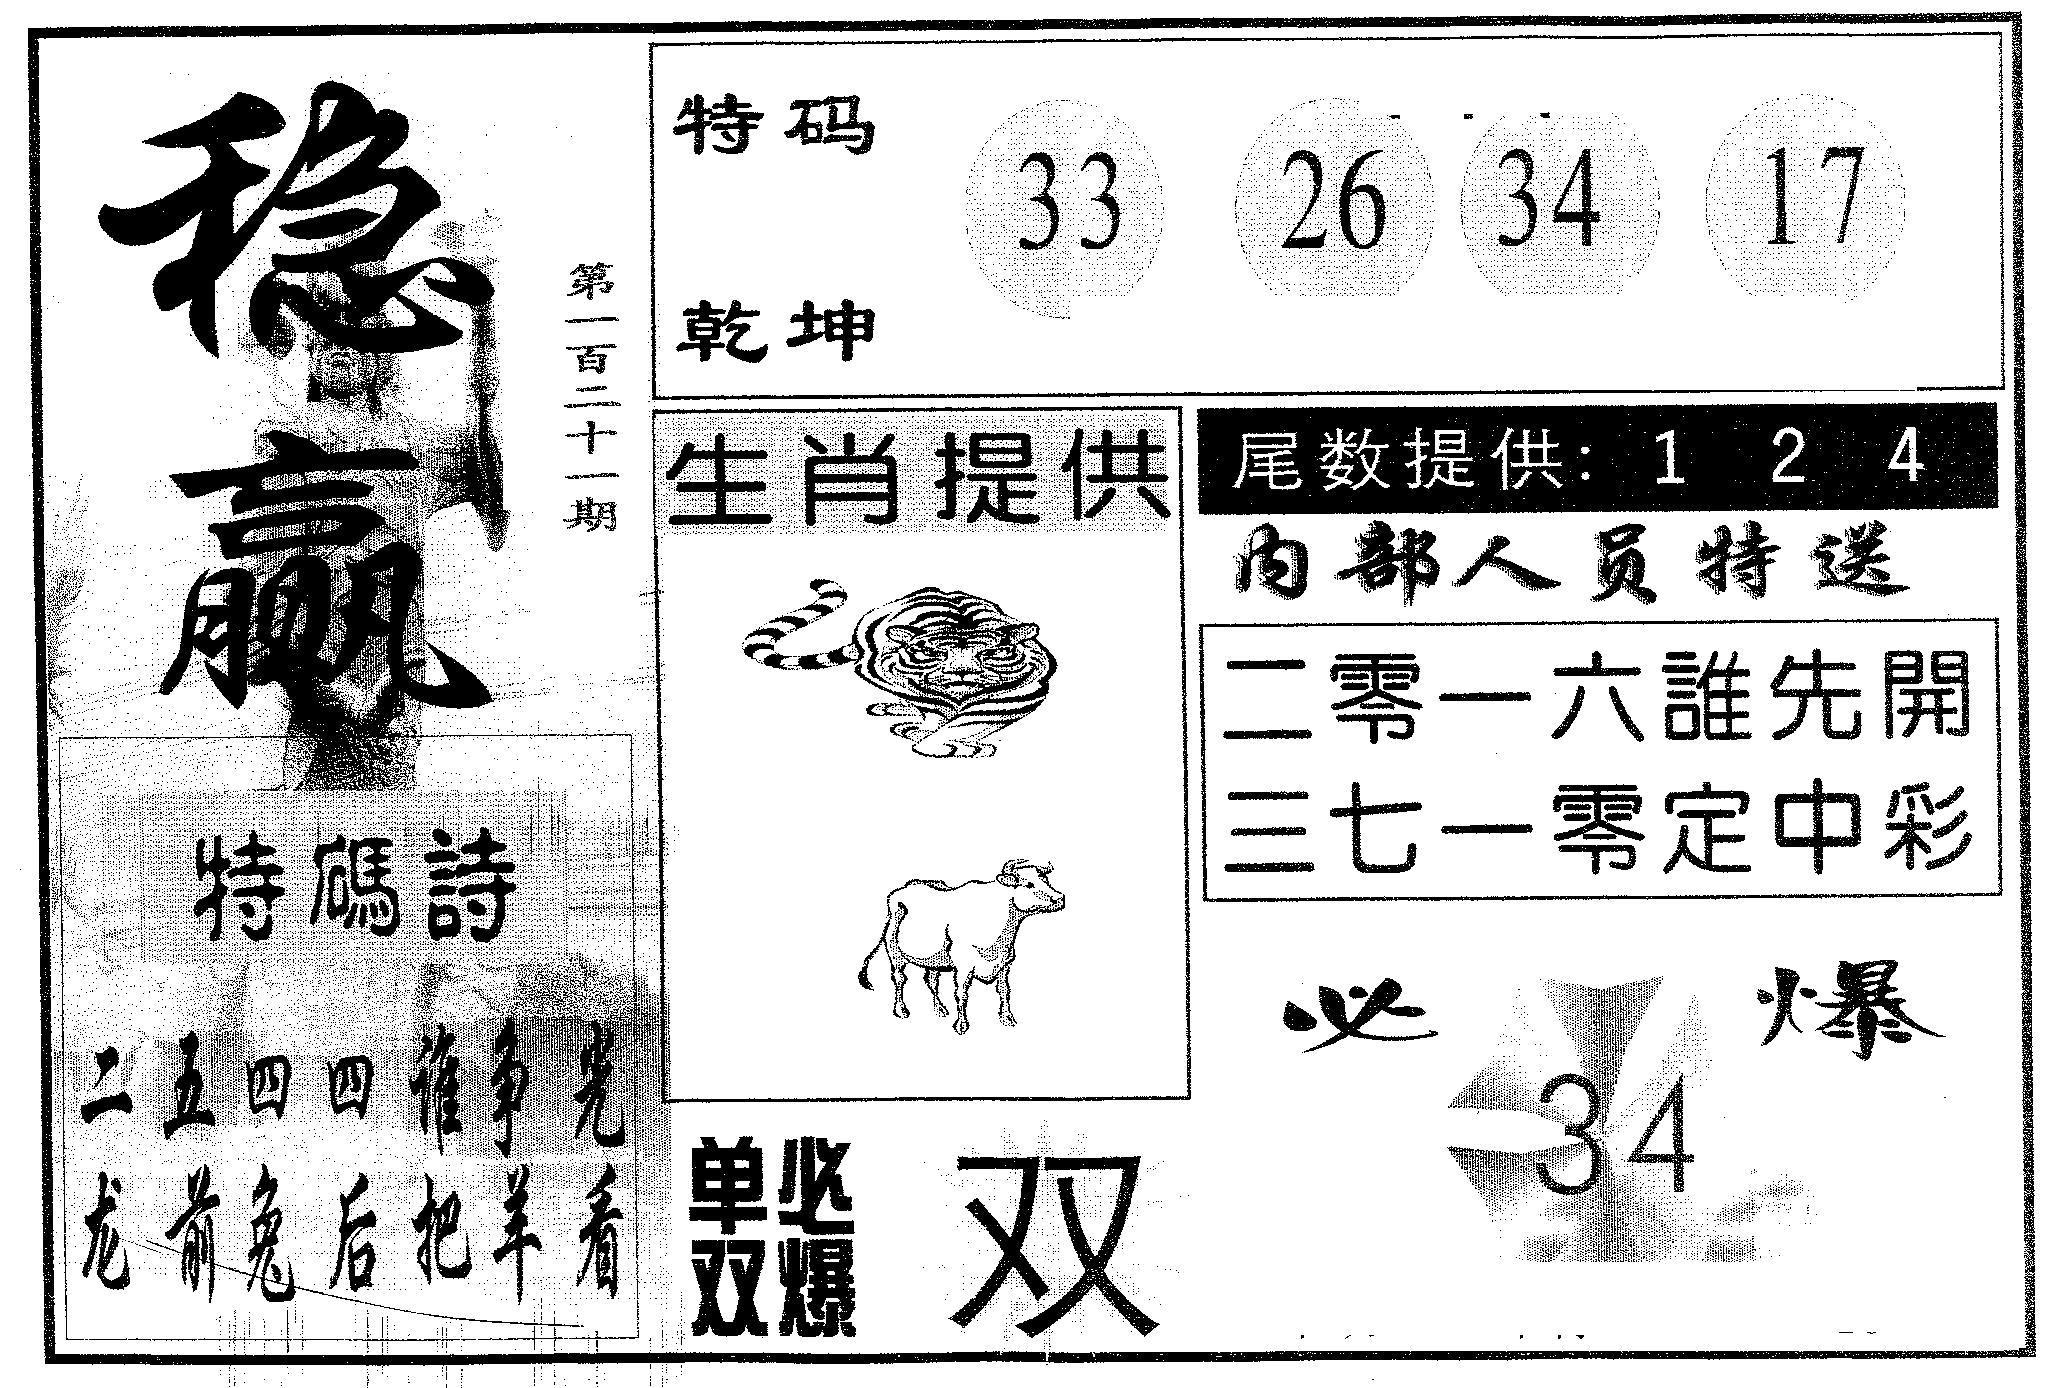 稳赢
第一百二十一期
特码
乾坤
33 26 34 17
生肖提供
尾数提供: 1 2 4
内部人员特送
二零一六誰先開
三七一零定中彩
特碼詩
二五四四谁争光
龙前兔后把羊看
单双必爆
双
必爆
34